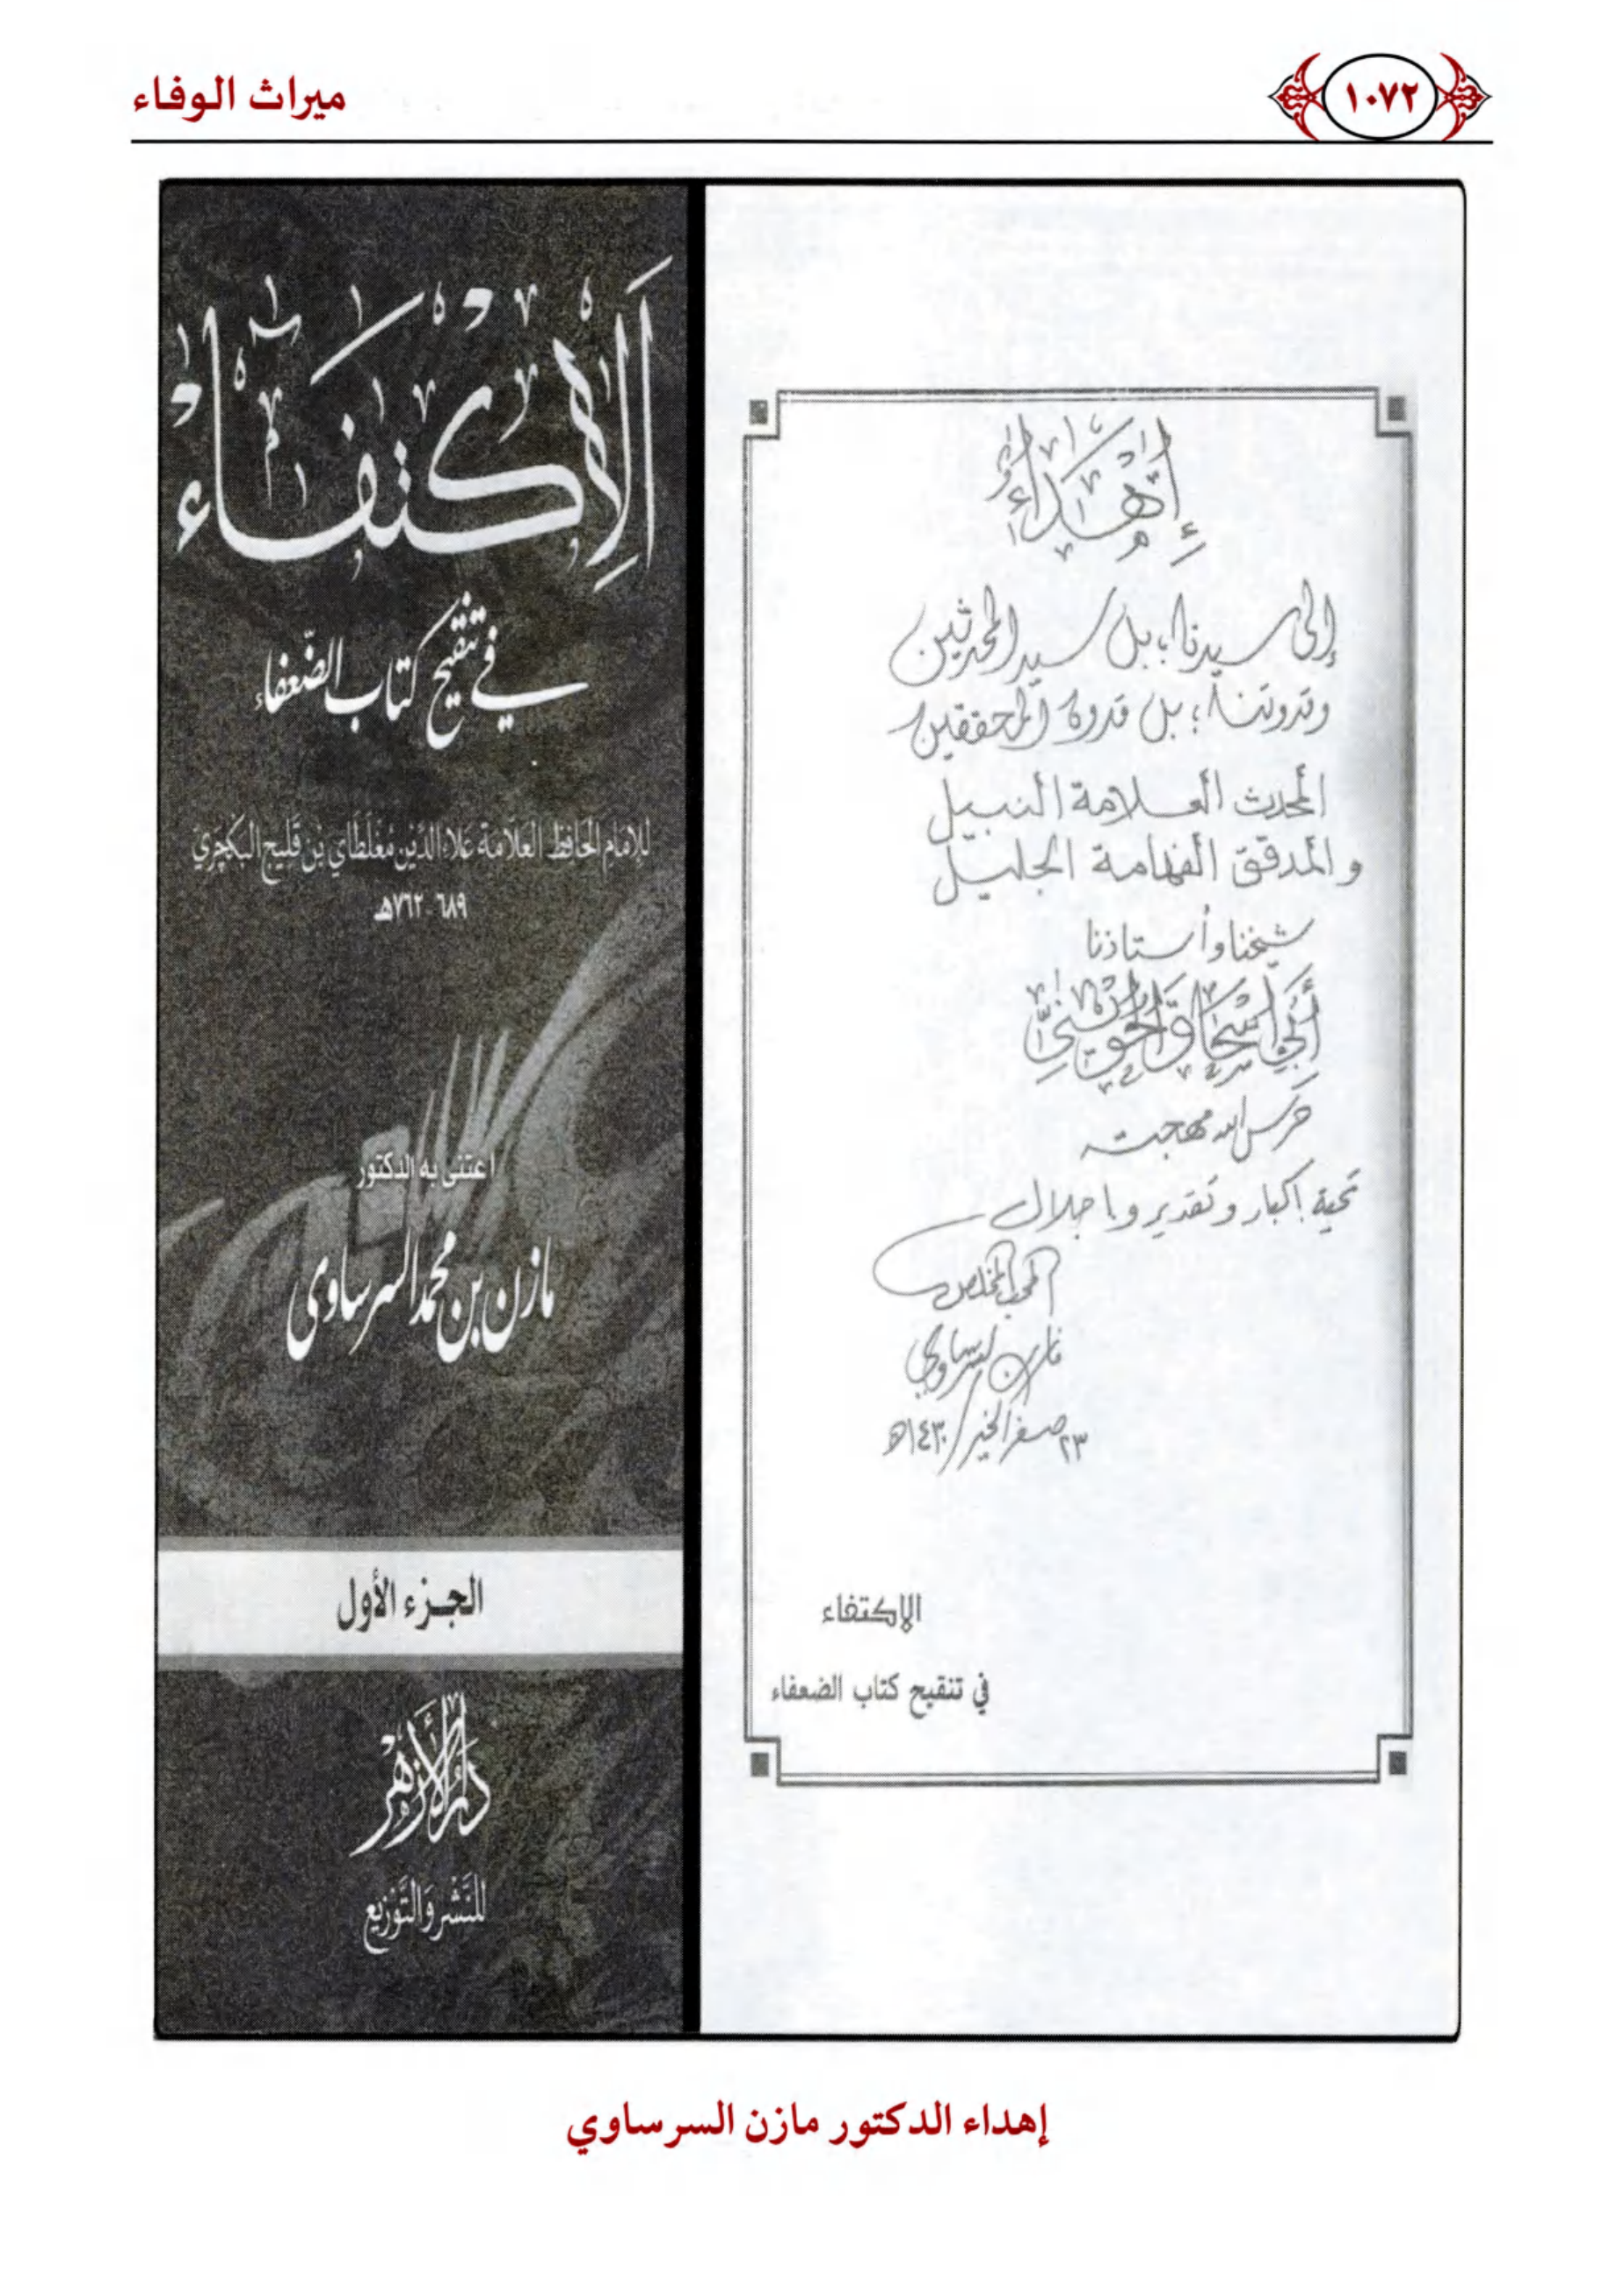 ١٠٧٢
ميراث الوفاء
إهداء
إلى سيدنا؛ بل سيد المحدثين
وقدوتنا؛ بل قدوة المحققين
المحدث العلامة النبيل
والمدقق الفهامة الجليل
شيخنا وأستاذنا
أبي إسحاق الحويني
حرس الله مهجته
تحية إكبار وتقدير وإجلال
المحب المخلص
مازن السرساوي
٢٣ صفر الخير / ١٤٣٠هـ
الاكتفاء
في تنقيح كتاب الضعفاء
الاكتفاء
في تنقيح كتاب الضعفاء
للإمام الحافظ العلامة علاء الدين مغلطاي بن قليج البكجري
٦٨٩ - ٧٦٢هـ
اعتنى به الدكتور
مازن بن محمد السرساوي
الجزء الأول
دار الأزهر
للنشر والتوزيع
إهداء الدكتور مازن السرساوي